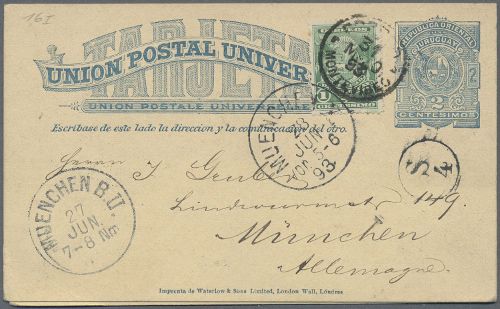 16I
TARJETA
UNION POSTAL UNIVER
UNION POSTALE UNIVERSELLE
REPUBLICA ORIENTAL
URUGUAY
2 2
CENTESIMOS
MONTEVIDEO
Escríbase de este lado la direccion y la comunicacion del otro.
MUENCHEN
28
JUN
VOR 5-6
93
S
4
Herrn J. Gruber
Lindwurmstr. 149.
München
Allemagne.
MUENCHEN B.II.
27
JUN.
7-8 Nm
Imprenta de Waterlow & Sons Limited, London Wall, Lóndres